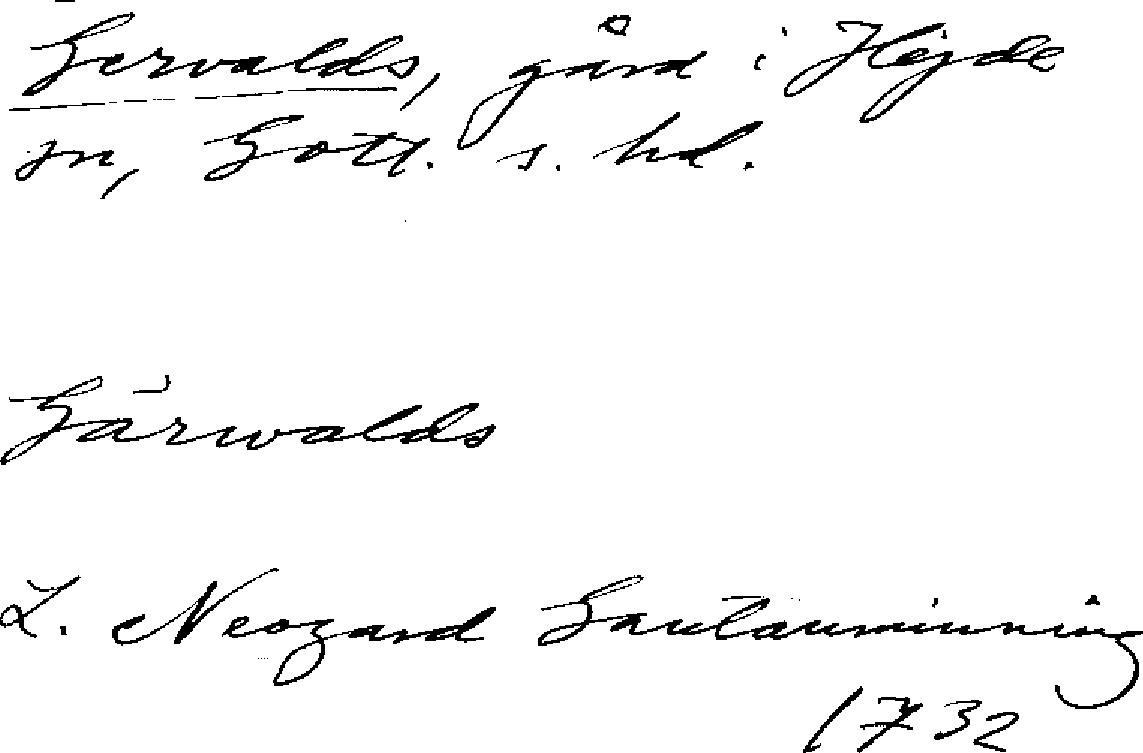 Gervalds, gård i Hejde
sn, Gotl. s. hd.
Gärwalds
L. Neogard Gautauminning
1732